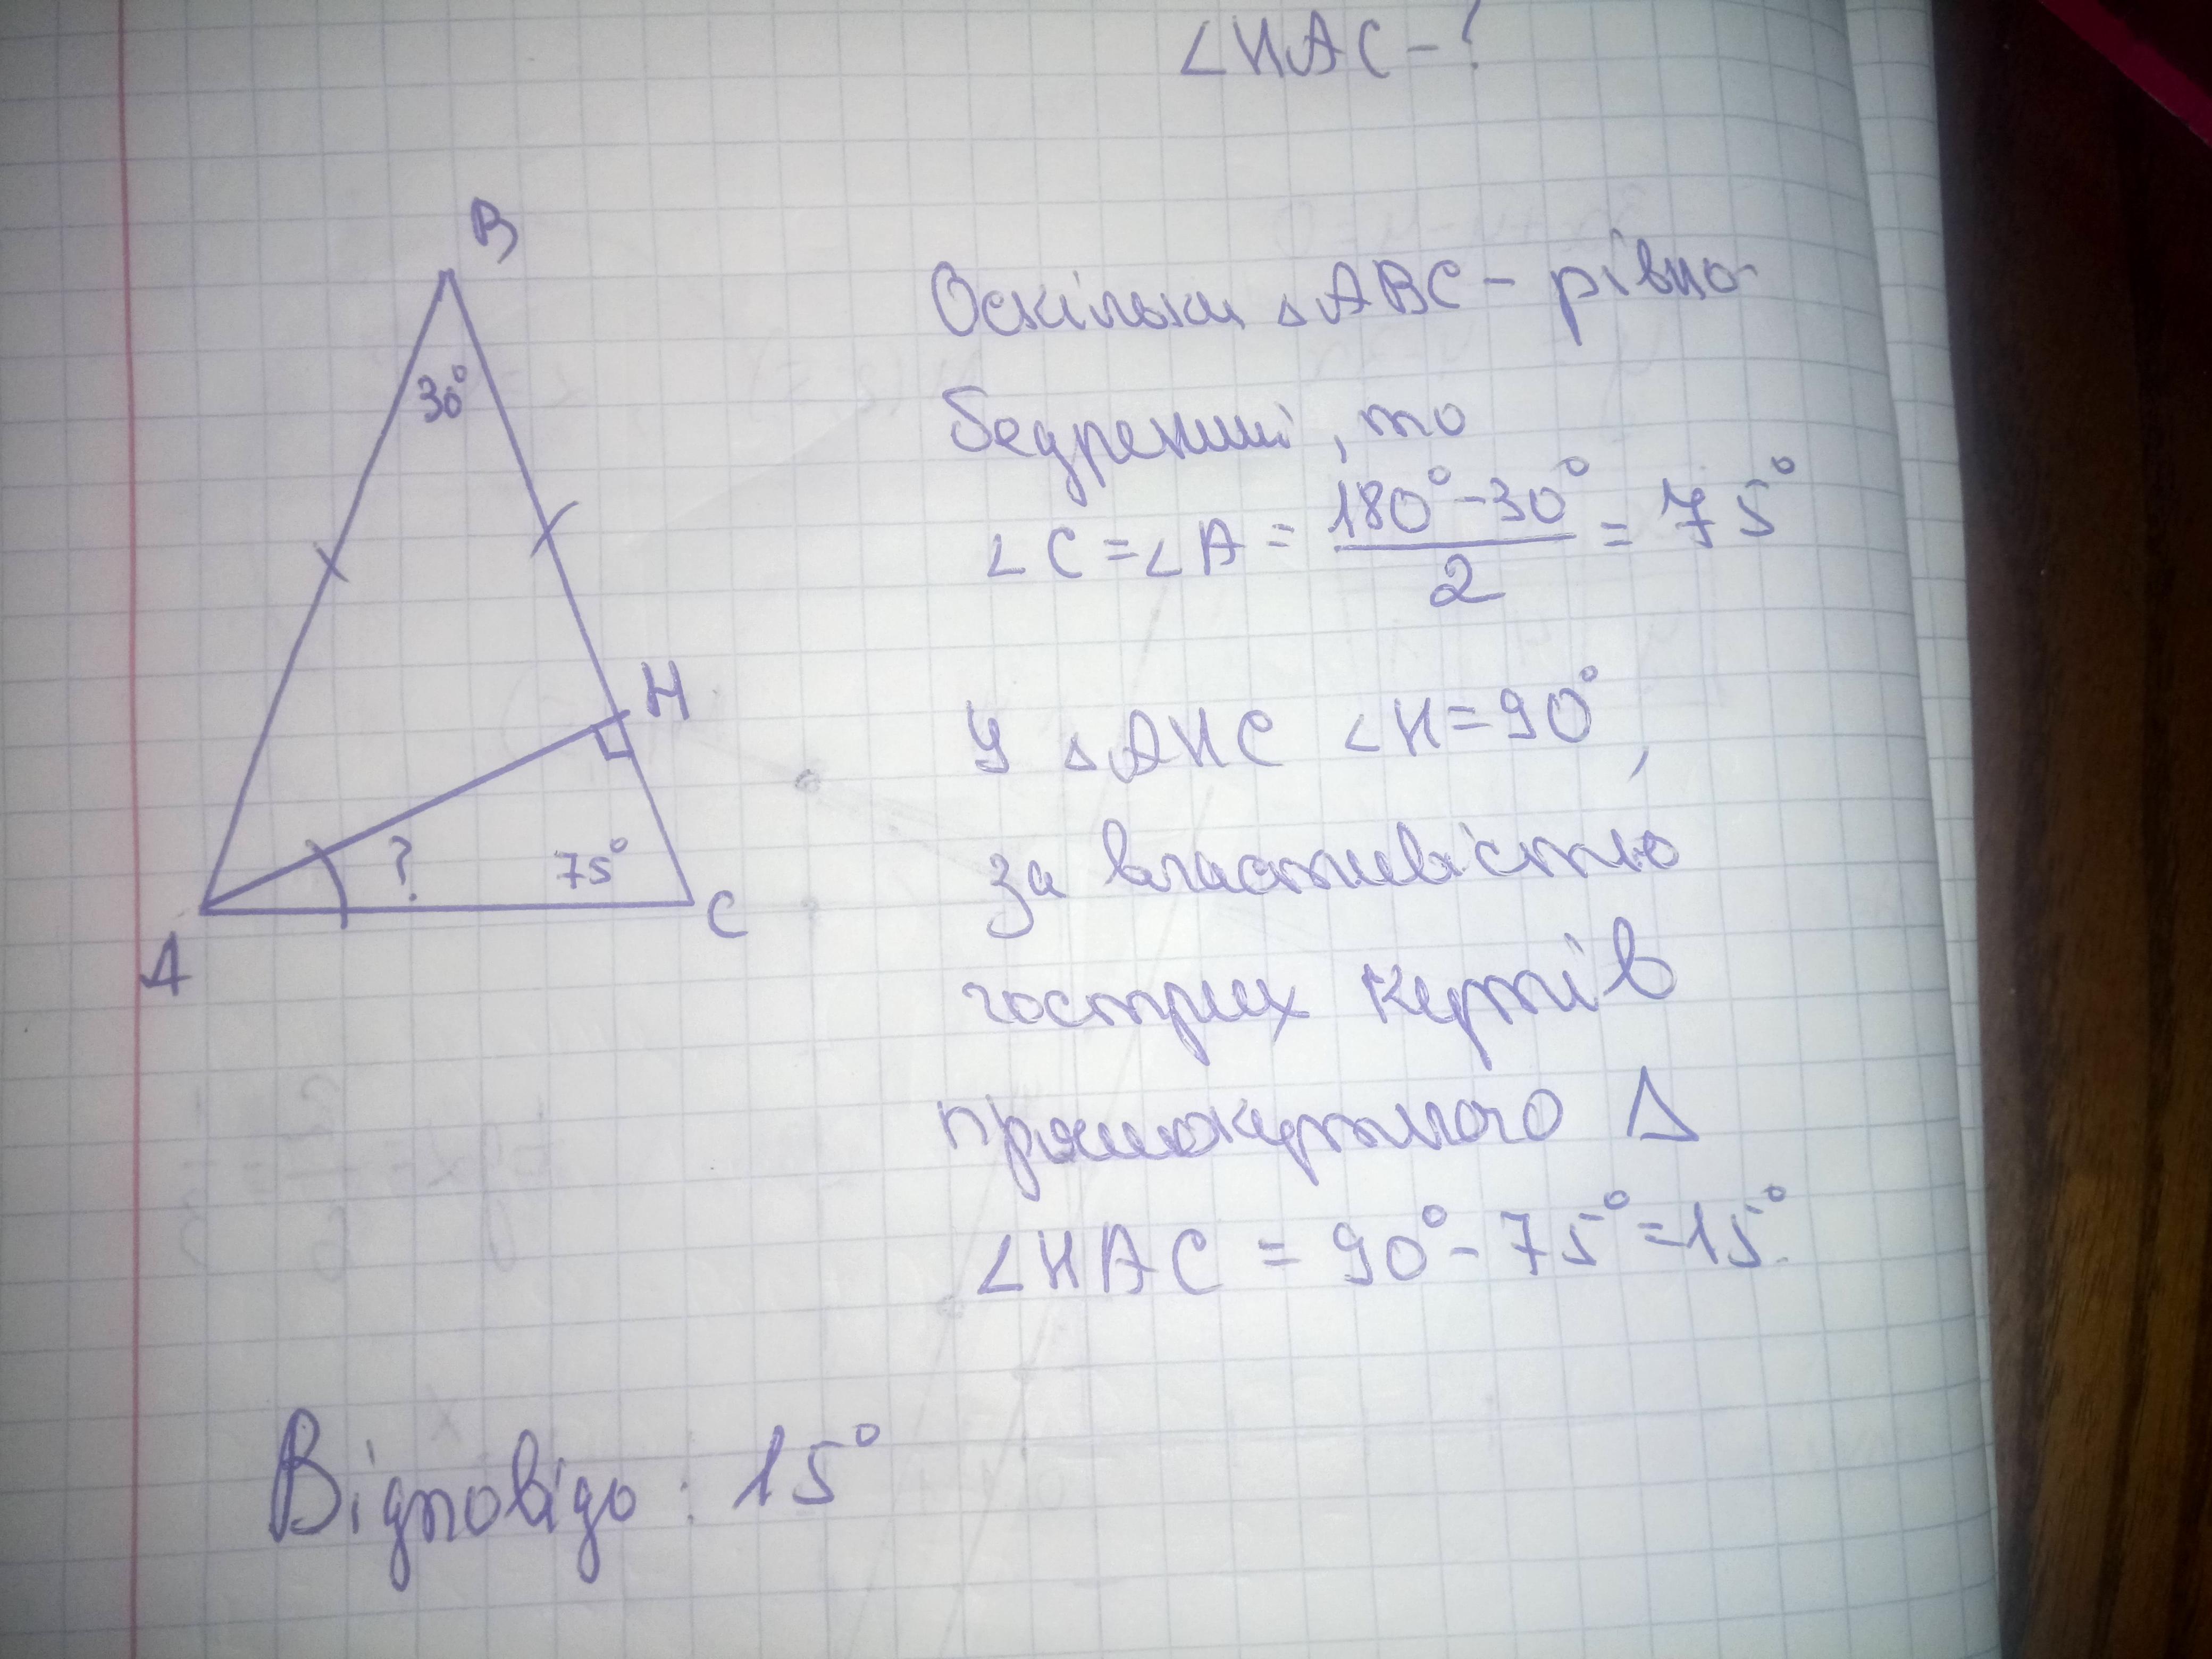 ∠HAC - ?
B
30°
H
?
75°
C
A
Оскільки △ABC - рівно-
бедрений, то
∠C = ∠A = (180° - 30°)/2 = 75°
У △AHC ∠H = 90°,
за властивістю
гострих кутів
прямокутного △
∠HAC = 90° - 75° = 15°.
Відповідь: 15°